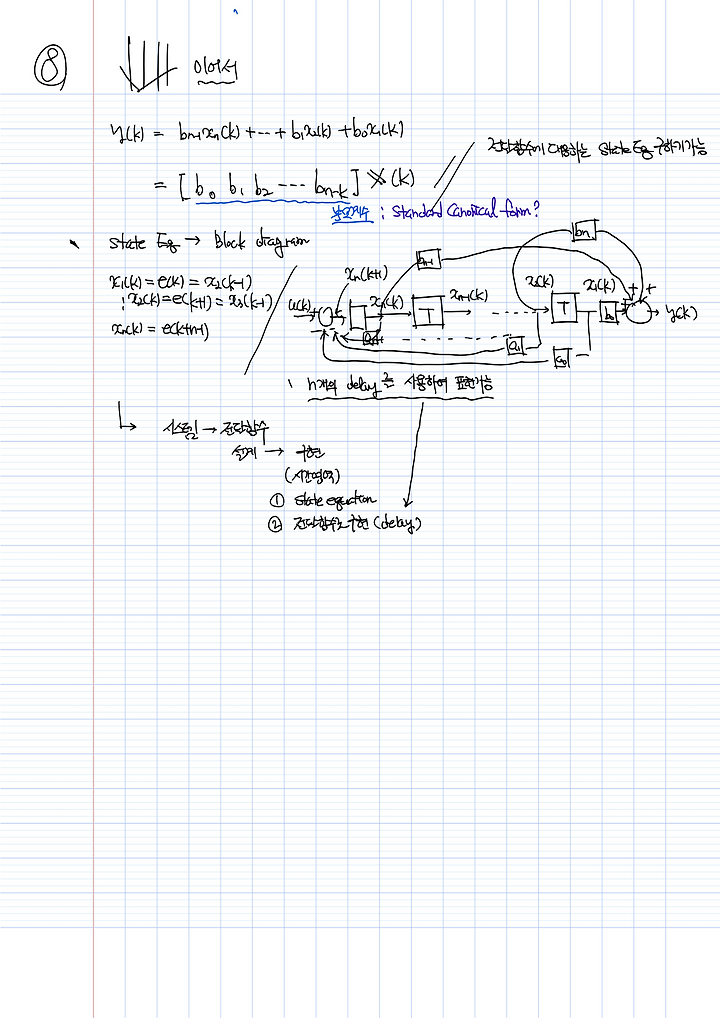 ⑧ 이어서
y(k) = bn-1xn(k) + -- + b1x2(k) + b0x1(k)
= [b0 b1 b2 --- bn-k] X(k)
전달함수에 대응하는 State Eq 구하기 가능
분모계수 : Standard Canonical form?
State Eq → Block diagram
x1(k) = e(k) = x2(k-1)
x2(k) = e(k+1) = x3(k-1)
xn(k) = e(k+n-1)
u(k) xn(k+1) xn(k) T xn-1(k) x2(k) T x1(k) b0 y(k)
bn-1
a1
a0
n개의 delay를 사용하여 표현가능
시스템 → 전달함수
설계 → 구현
(시간영역)
① State equation
② 전달함수로 구현 (delay)